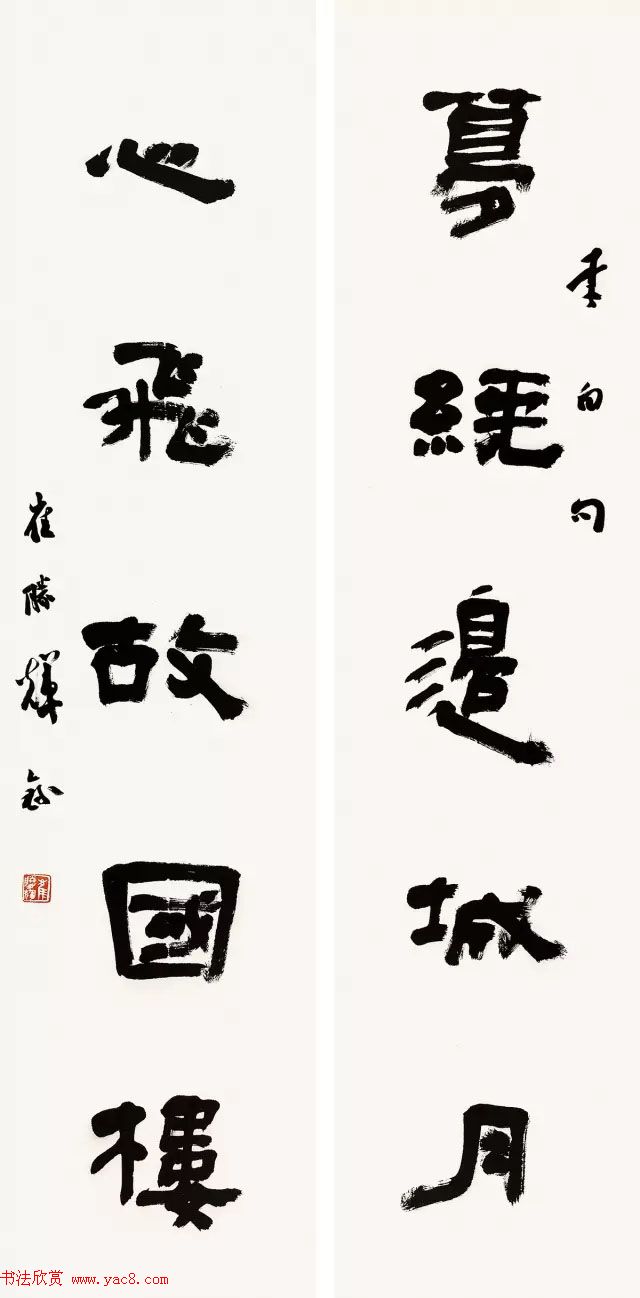 夢繞邊城月
李白句
心飛故國樓
崔勝輝錄
书法欣赏 www.yac8.com